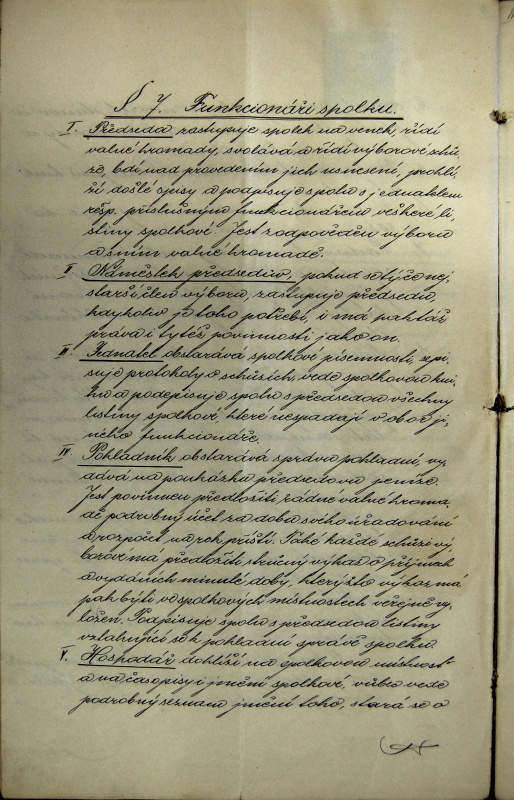 § 7. Funkcionáři spolku.
I. Předseda zastupuje spolek na venek, řídí
valné hromady, svolává a řídí výborové schů,
ze, bdí nad provedením jich usnesení, prohlí,
ží došlé spisy a podpisuje spolu s jednatelem
resp. příslušným funkcionářem veškeré li,
stiny spolkové. Jest zodpověděn výboru
a s ním valné hromadě.
II. Náměstek předsedův, pokud se týče nej,
starší člen výboru, zastupuje předsedu,
kdykoliv je toho potřebí, i má pak táž
práva i tytéž povinnosti jako on.
III. Jednatel obstarává spolkové písemnosti, sepi,
suje protokoly o schůzích, vede spolkovou kni,
hu a podepisuje spolu s předsedou všechny
listiny spolkové, které nespadají v obor ji,
ného funkcionáře.
IV. Pokladník obstarává správu pokladní, vy,
dává na poukázku předsedova peníze.
Jest povinen předložiti řádné valné hroma,
dě podrobný účet za dobu svého úřadování
a rozpočet na rok příští. Také každé schůzi vý,
borové má předložiti stručný výkaz o příjmech
a vydáních minulé doby, kterýžto výkaz má
pak býti ve spolkových místnostech veřejně vy,
ložen. Podpisuje spolu s předsedou listiny
vztahující se k pokladní správě spolku.
V. Hospodář dohlíží na spolkovou místnost
a na časopisy i jmění spolkové, vůbec vede
podrobný seznam jmění toho, stará se o